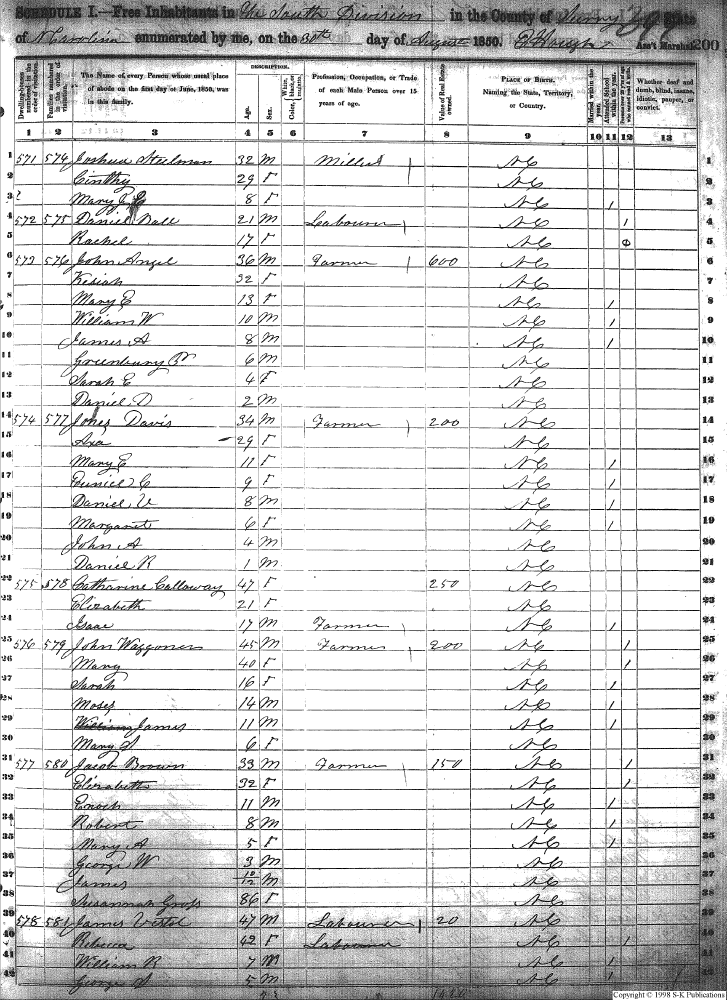 SCHEDULE I.—Free Inhabitants in The South Division in the County of Surry State
of N Carolina enumerated by me, on the 30th day of August 1850. Ass't Marshal. 200
DESCRIPTION.
Dwelling-houses numbered in the order of visitation. Families numbered in the order of visitation. The Name of every Person whose usual place of abode on the first day of June, 1850, was in this family. Age. Sex. Color, White, black, or mulatto. Profession, Occupation, or Trade of each Male Person over 15 years of age. Value of Real Estate owned. PLACE OF BIRTH. Naming the State, Territory, or Country. Married within the year. Attended School within the year. Whether deaf and dumb, blind, insane, idiotic, pauper, or convict.
1 2 3 4 5 6 7 8 9 10 11 12 13
1 571 574 Joshua Steelman 32 M Miller NC 1
2 Cinthy 29 F NC 2
3 Mary E 8 F NC / 3
4 572 575 Daniel Dull 21 M Labourer NC / 4
5 Rachel 17 F NC 5
6 573 576 John Angel 36 M Farmer 600 NC 6
7 Kisiah 32 F NC 7
8 Mary E 13 F NC / 8
9 William W 10 M NC / 9
10 James A 8 M NC / 10
11 Greenbury 6 M NC 11
12 Sarah E 4 F NC 12
13 Daniel D 2 M NC 13
14 574 577 Jones Davis 34 M Farmer 200 NC 14
15 Axa 29 F NC 15
16 Mary E 11 F NC / 16
17 Eunice C 9 F NC / 17
18 Daniel V 8 M NC / 18
19 Margaret 6 F NC / 19
20 John A 4 M NC 20
21 Daniel R 1 M NC 21
22 575 578 Catharine Calloway 47 F 250 NC 22
23 Elizabeth 21 F NC 23
24 Isaac 17 M Farmer NC / 24
25 576 579 John Waggoner 45 M Farmer 200 NC / 25
26 Mary 40 F NC / 26
27 Sarah 16 F NC / 27
28 Moses 14 M NC / 28
29 William James 11 M NC / 29
30 Mary S 6 F NC 30
31 577 580 Jacob Brown 33 M Farmer 150 NC / 31
32 Elizabeth 32 F NC / 32
33 Enoch 11 M NC / 33
34 Robert 8 M NC / 34
35 Mary A 5 F NC / 35
36 George W 3 M NC 36
37 James 10/12 M NC 37
38 Susannah Gross 86 F NC 38
39 578 581 James Vestal 47 M Labourer 20 NC 39
40 Rebecca 42 F Labourer NC / 40
41 William R 7 M NC / 41
42 George S 5 M NC / 42
Copyright © 1998 S-K Publications